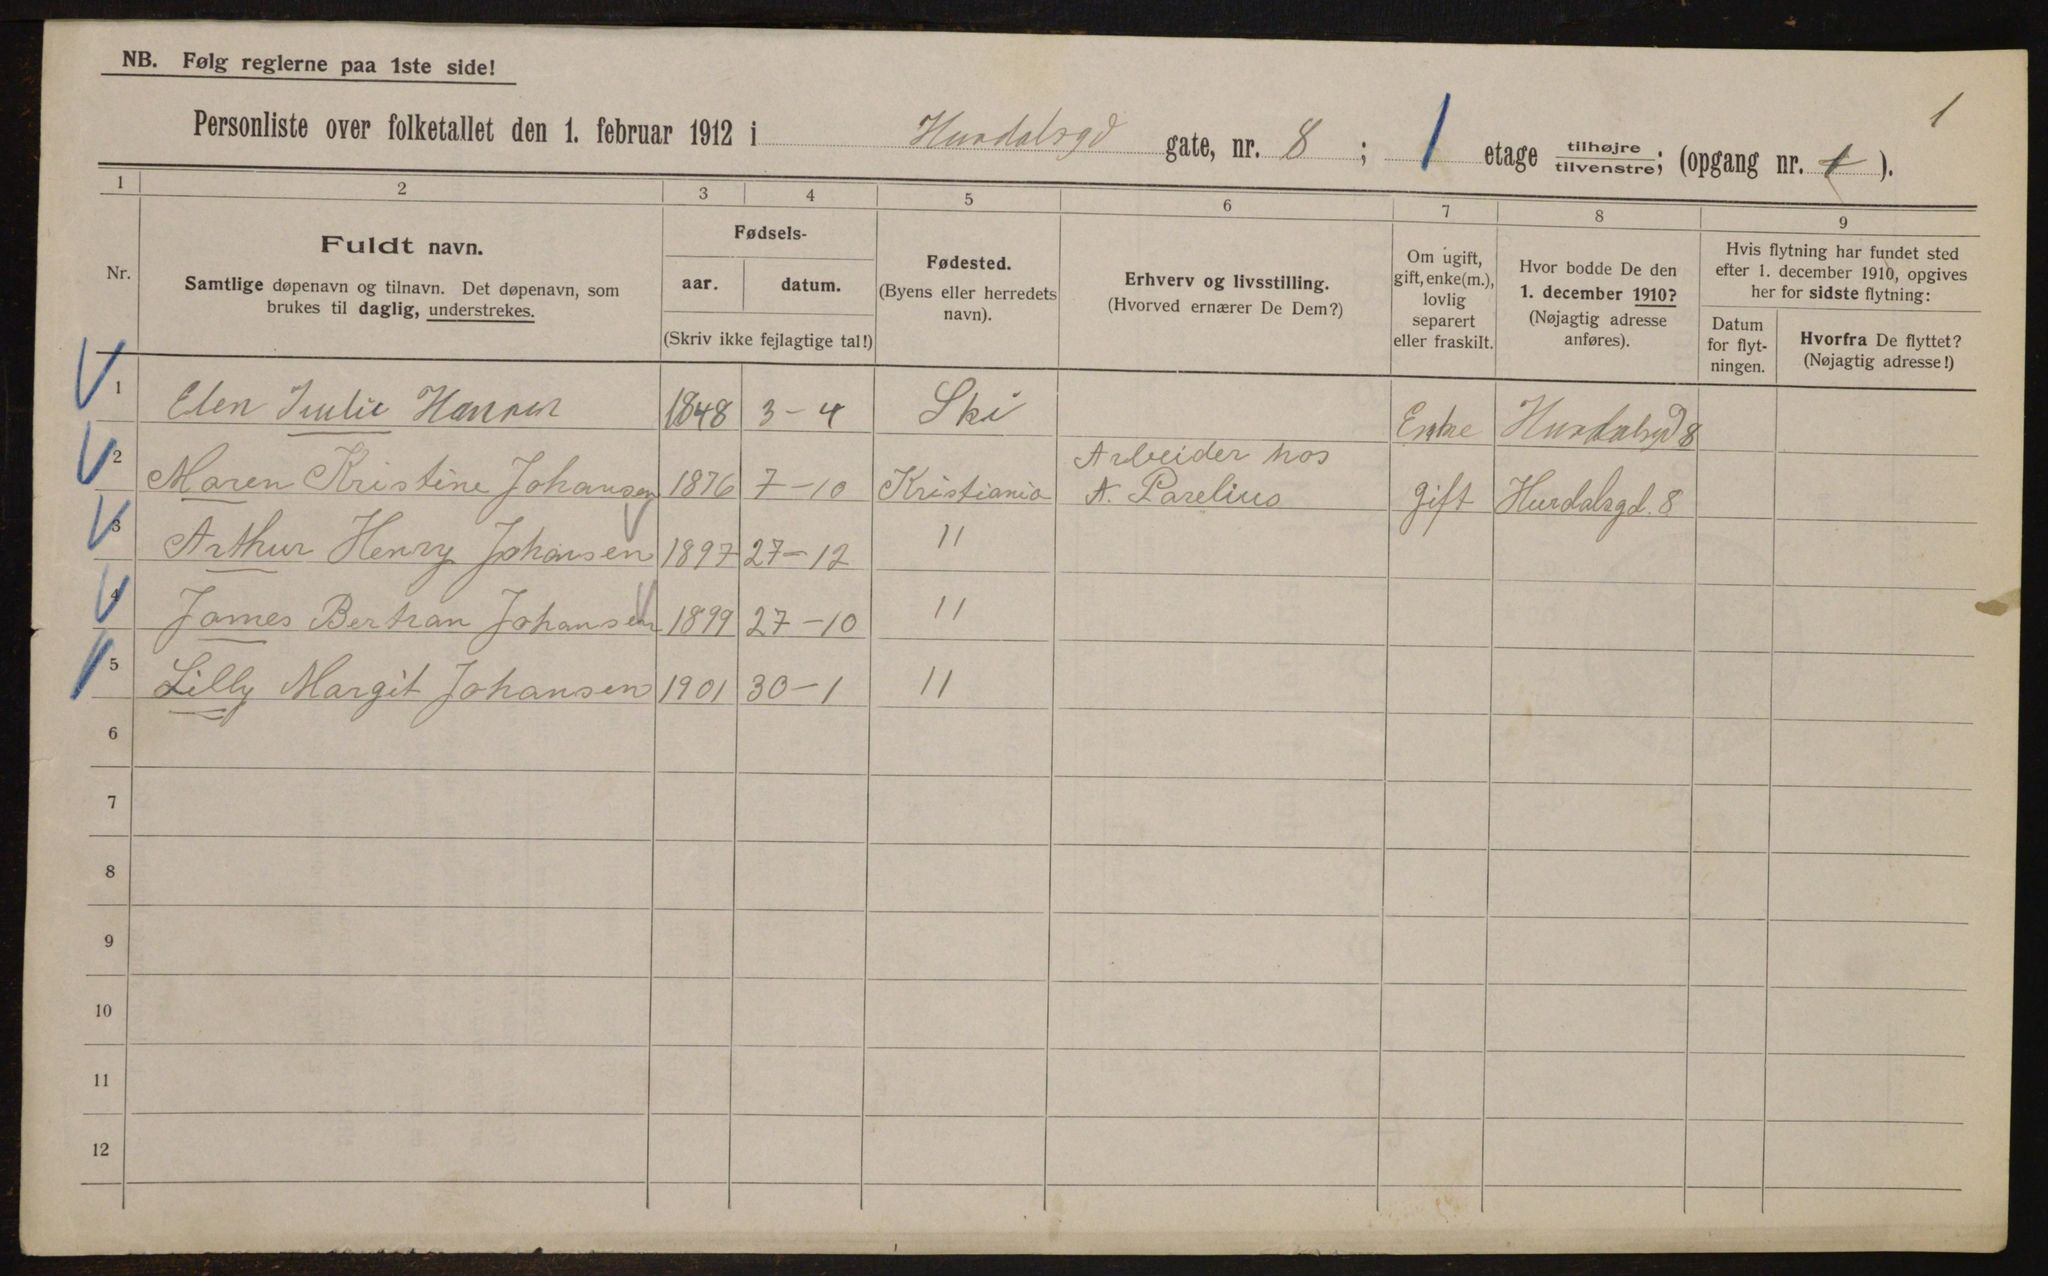 NB. Følg reglerne paa 1ste side!
1
Personliste over folketallet den 1. februar 1912 i Hurdalsgd gate, nr. 8 ; 1 etage tilhøjre/tilvenstre; (opgang nr. 1 ).
1 2 3 4 5 6 7 8 9
Nr.
Fuldt navn.
Samtlige døpenavn og tilnavn. Det døpenavn, som
brukes til daglig, understrekes.
Fødsels-
aar. datum.
(Skriv ikke fejlagtige tal!)
Fødested.
(Byens eller herredets
navn).
Erhverv og livsstilling.
(Hvorved ernærer De Dem?)
Om ugift,
gift, enke(m.),
lovlig
separert
eller fraskilt.
Hvor bodde De den
1. december 1910?
(Nøjagtig adresse
anføres).
Hvis flytning har fundet sted
efter 1. december 1910, opgives
her for sidste flytning:
Datum
for flyt-
ningen.
Hvorfra De flyttet?
(Nøjagtig adresse!)
1 Elen Julie Hansen 1848 3-4 Ski Enke Hurdalsgd 8
2 Maren Kristine Johansen 1876 7-10 Kristiania Arbeider hos
A. Parelius gift Hurdalsgd. 8
3 Arthur Henry Johansen 1897 27-12 "
4 James Bertran Johansen 1899 27-10 "
5 Lilly Margit Johansen 1901 30-1 "
6
7
8
9
10
11
12